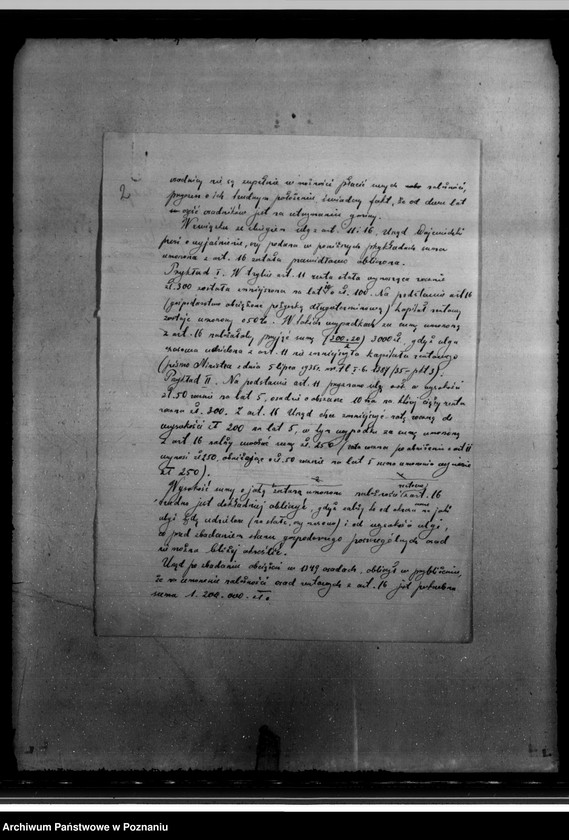 2
osadnicy nie są zupełnie w możności płacić swych należności,
położeniu, świadczy fakt, że od dwu lat
osadników jest na utrzymaniu gminy.
W związku ze zbiegiem ulg z art. 11 i 16, Urząd Wojewódzki
prosi o wyjaśnienie, czy podana w poniższych przykładach suma
umorzona z art. 16 została prawidłowo obliczona.
Przykład I. W trybie art. 11 renta stała wynosząca rocznie
zł. 300 została zmniejszona na lat 10 o zł. 100. Na podstawie art 16
(gospodarstwo obciążone pożyczką długoterminową) kapitał rentowy
zostaje umorzony o 50%. W takich wypadkach za sumę umorzoną
z art. 16 należałoby przyjąć sumę (300.20/2) 3000 zł, gdyż ulga
czasowa udzielona z art. 11 nie zmniejszyła kapitału rentowego
(pismo Ministra z dnia 5 lipca 1935r.
Przykład II. Na podstawie art. 11 przyznano ulgę osob. w wysokości
zł. 50 rocznie na lat 5, osadzie o obszarze 10 ha na której ciąży renta
roczna zł. 300. Z art. 16 Urząd chce zmniejszyć ratę roczną do
wysokości zł 200 na lat 5, w tym wypadku za sumę umorzoną
z art. 16 należy uważać sumę zł. 250 (rata roczna po obniżeniu z art 11
wynosi zł 250, obniżając o zł. 50 rocznie na lat 5 suma umorzenia wyniesie
zł 250).
Wysokość sumy o jaką zostaną umorzone należności z art. 16
trudno jest dokładniej obliczyć, gdyż zależy to od okresu na jaki
ulgi będą udzielone (na stałe, czy czasowo) i od wysokości ulgi,
co przed zbadaniem stanu gospodarczego poszczególnych osad
nie można bliżej określić.
Urząd po zbadaniu obciążeń w 1349 osadach, obliczył w przybliżeniu,
że na umorzenie należności osad rentowych z art. 16 jest potrzebna
suma 1.200.000 zł.
Archiwum Państwowe w Poznaniu